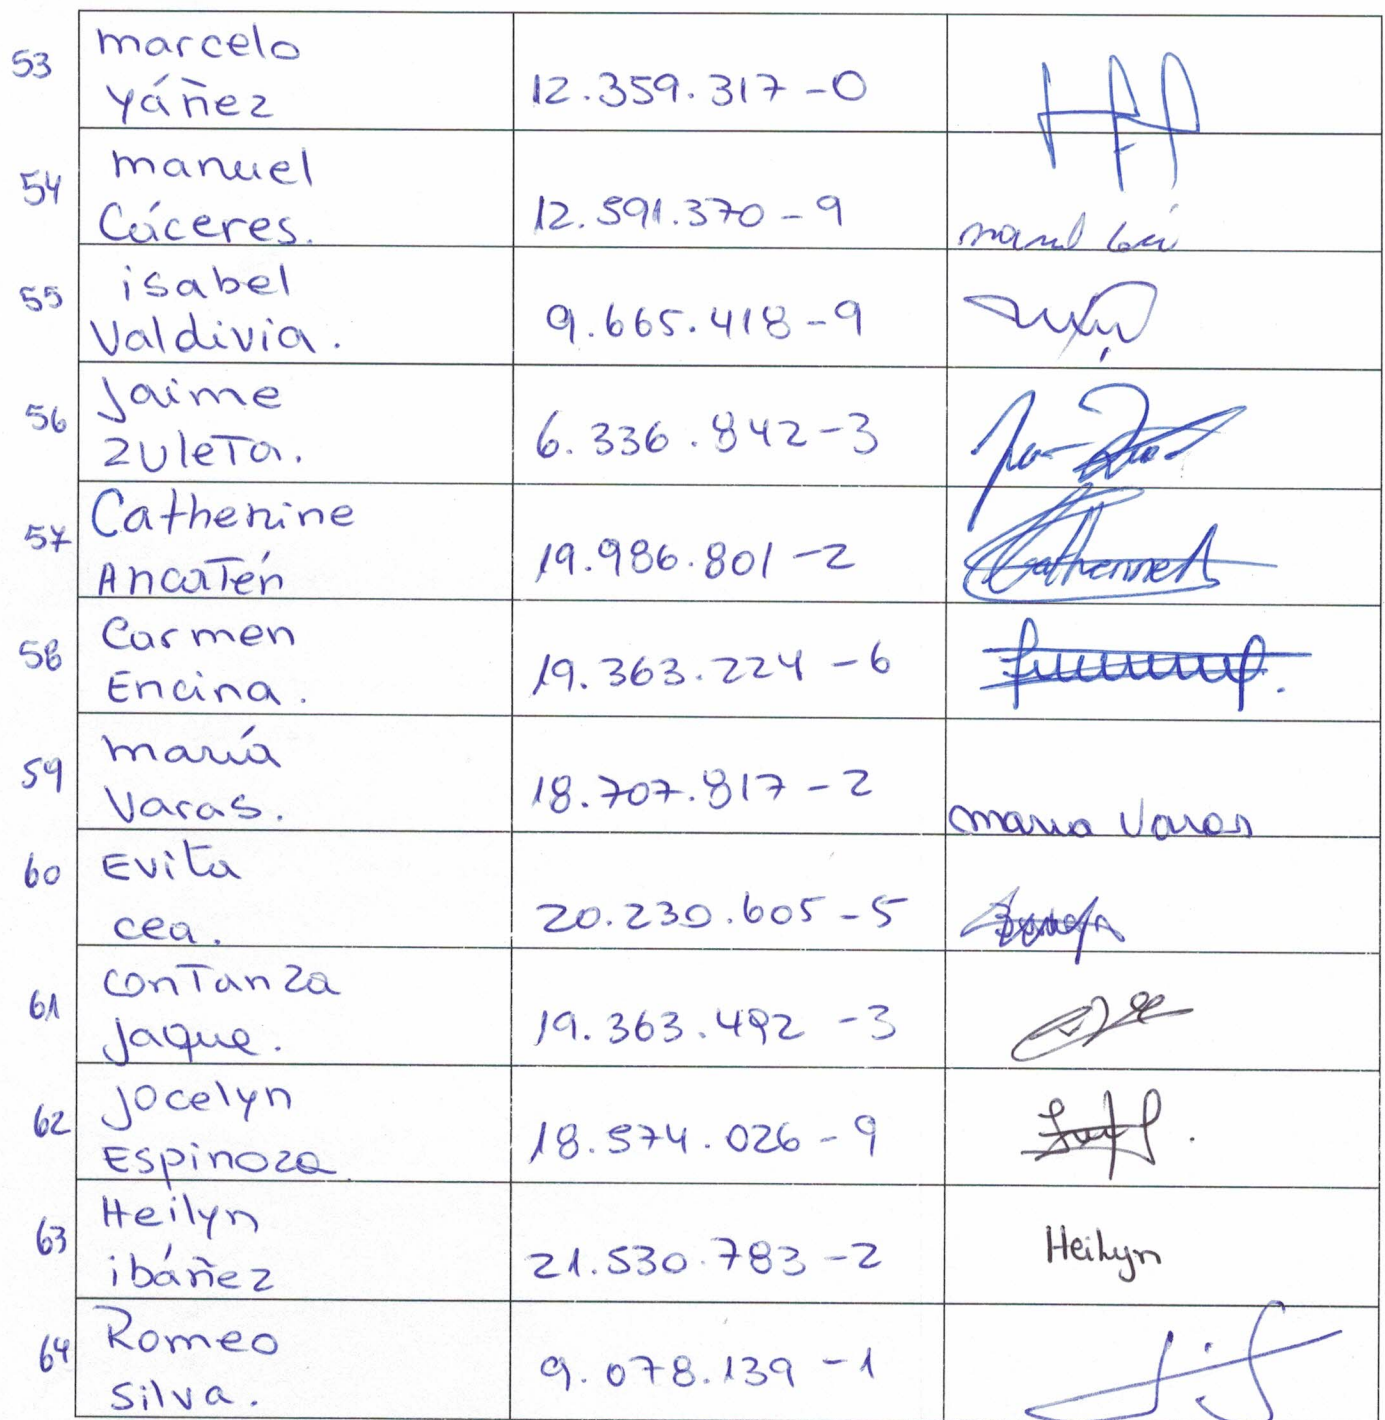 53
marcelo
yáñez
12.359.317-0
54
manuel
Cáceres.
12.591.370-9
55
isabel
Valdivia.
9.665.418-9
56
Jaime
zuleTa.
6.336.842-3
57
Catherine
AncaTén
19.986.801-2
Catherine A
58
Carmen
Encina.
19.363.224-6
59
maría
Varas.
18.707.817-2
maria Varas
60
Evita
cea.
20.230.605-5
61
conTanza
Jaque.
19.363.492-3
62
Jocelyn
Espinoza
18.574.026-9
63
Heilyn
ibáñez
21.530.783-2
Heilyn
64
Romeo
silva.
9.078.139-1